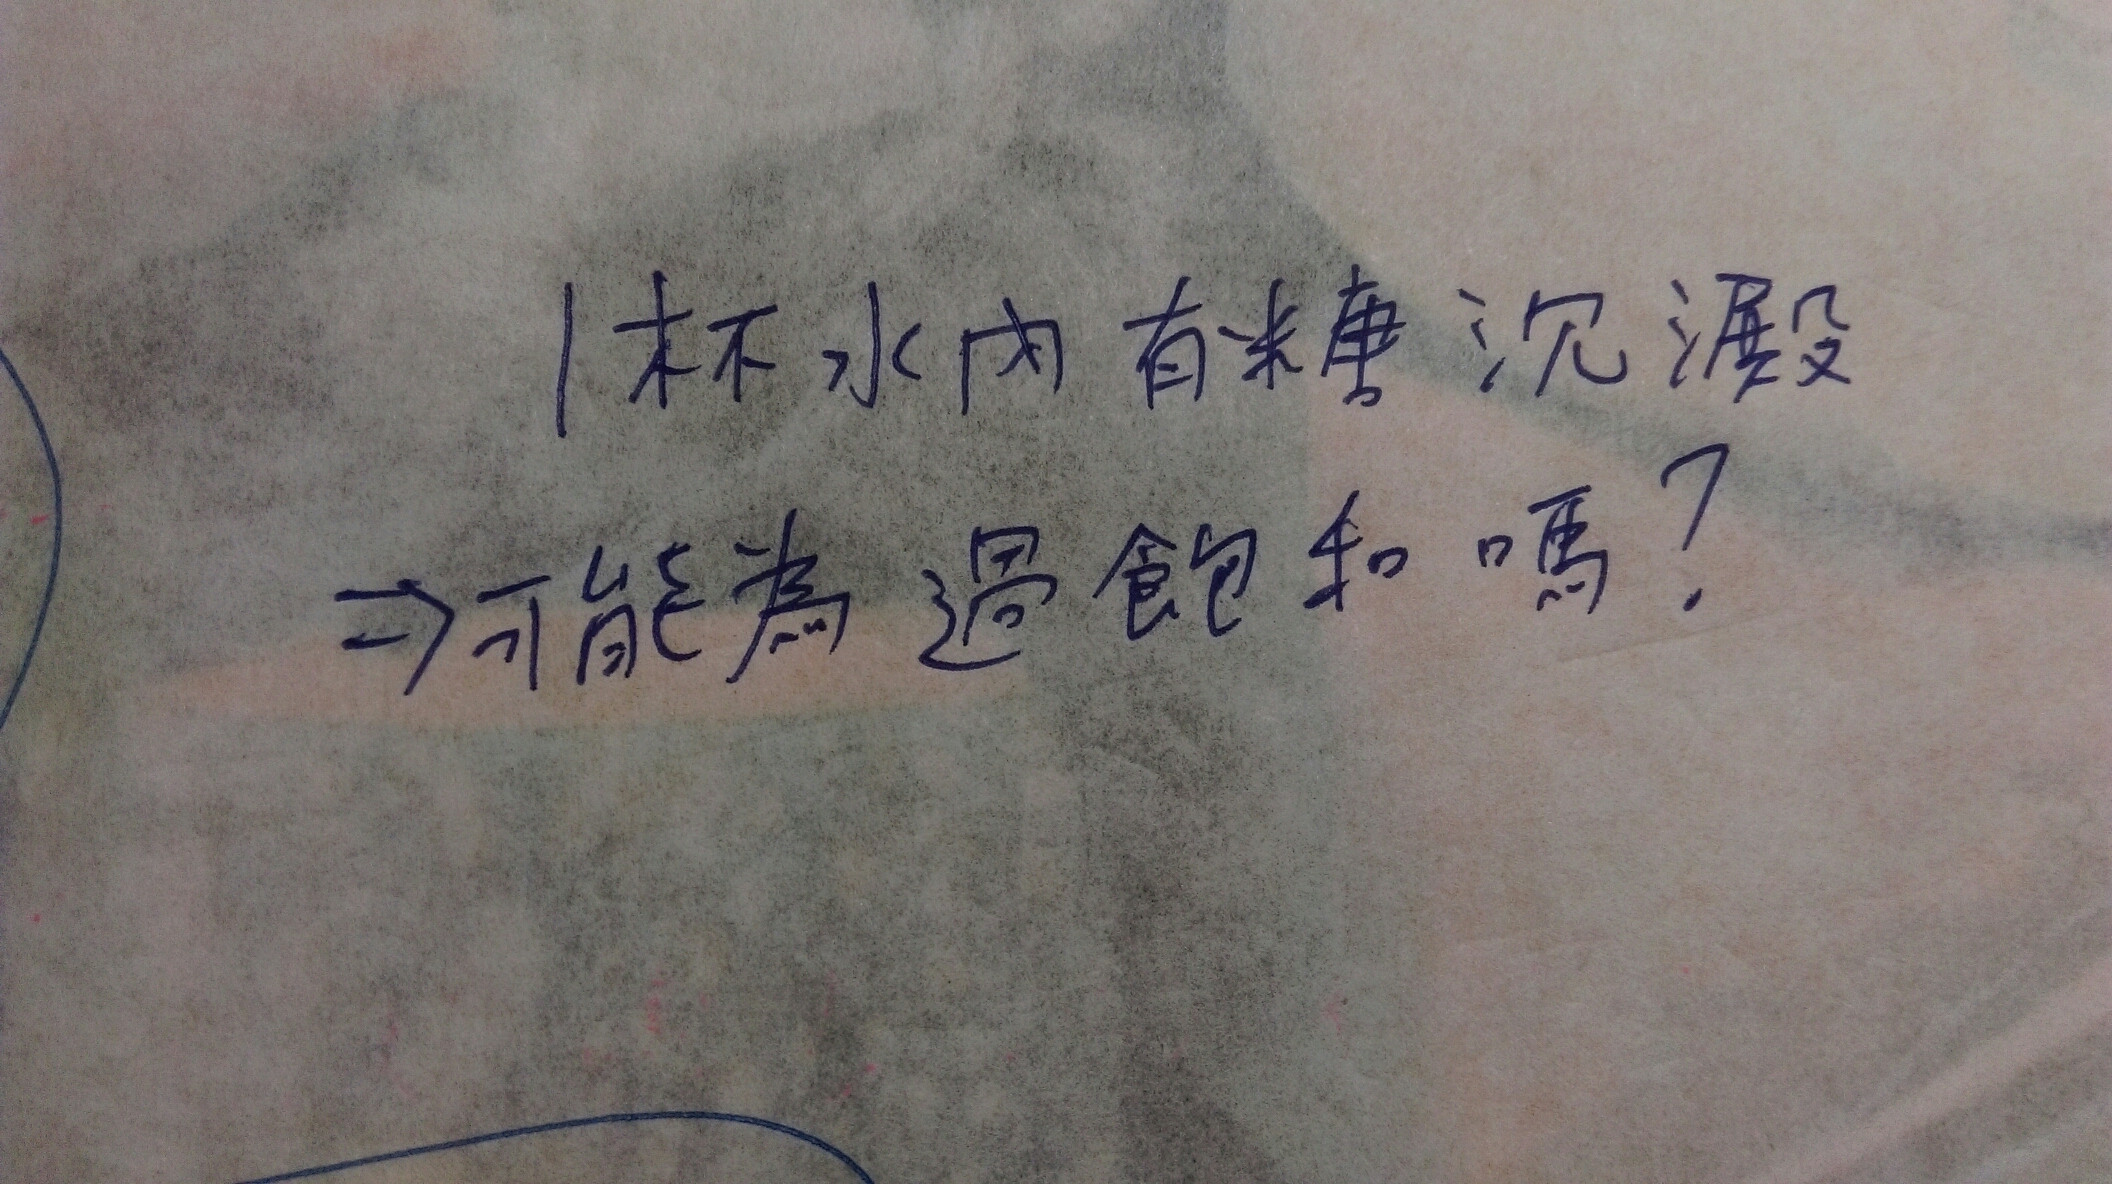 1杯水內有糖沉澱
⇒可能為過飽和嗎?